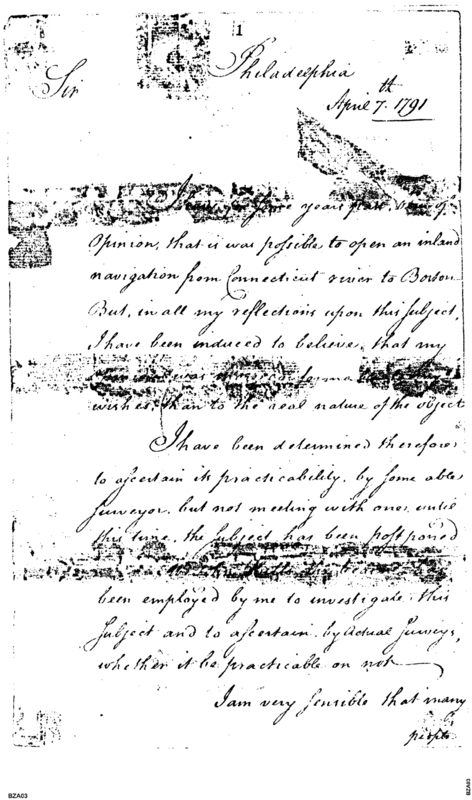 1
Philadelphia
Sir
April 7th 1791
years past, been of
Opinion, that is was possible to open an inland
navigation from Connecticut river to Boston
But, in all my reflections upon this subject,
I have been induced to believe, that my
was
wishes, than to the real nature of the object
I have been determined therefore
to ascertain its practicability, by some able
surveyor, but not meeting with one, until
this time, the subject has been postponed
been employed by me to investigate this
subject and to ascertain by actual surveys,
whether it be practicable or not
I am very sensible that many
people
BZA03
BZA03